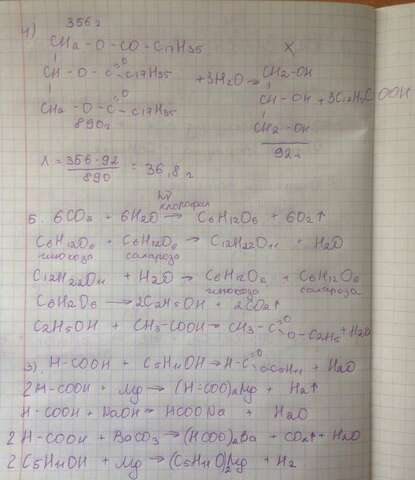 4) 356 г
CH2 - O - CO - C17H35   X
CH - O - C=O - C17H35 + 3H2O → CH2-OH
CH2 - O - C=O - C17H35   CH - OH + 3C17H35COOH
890г   CH2 - OH
92г
X = 356 · 92 / 890 = 36,8 г
hν
хлорофилл
5. 6CO2 + 6H2O → C6H12O6 + 6O2↑
C6H12O6 + C6H12O6 → C12H22O11 + H2O
глюкоза сахароза
C12H22O11 + H2O → C6H12O6 + C6H12O6
глюкоза сахароза
C6H12O6 → 2C2H5OH + 2CO2↑
C2H5OH + CH3-COOH → CH3-C=O O-C2H5 + H2O
3) H-COOH + C5H11OH → H-C=O OC5H11 + H2O
2H-COOH + Mg → (H-COO)2Mg + H2↑
H-COOH + NaOH → HCOONa + H2O
2H-COOH + BaCO3 → (HCOO)2Ba + CO2↑ + H2O
2C5H11OH + Mg → (C5H11O)2Mg + H2